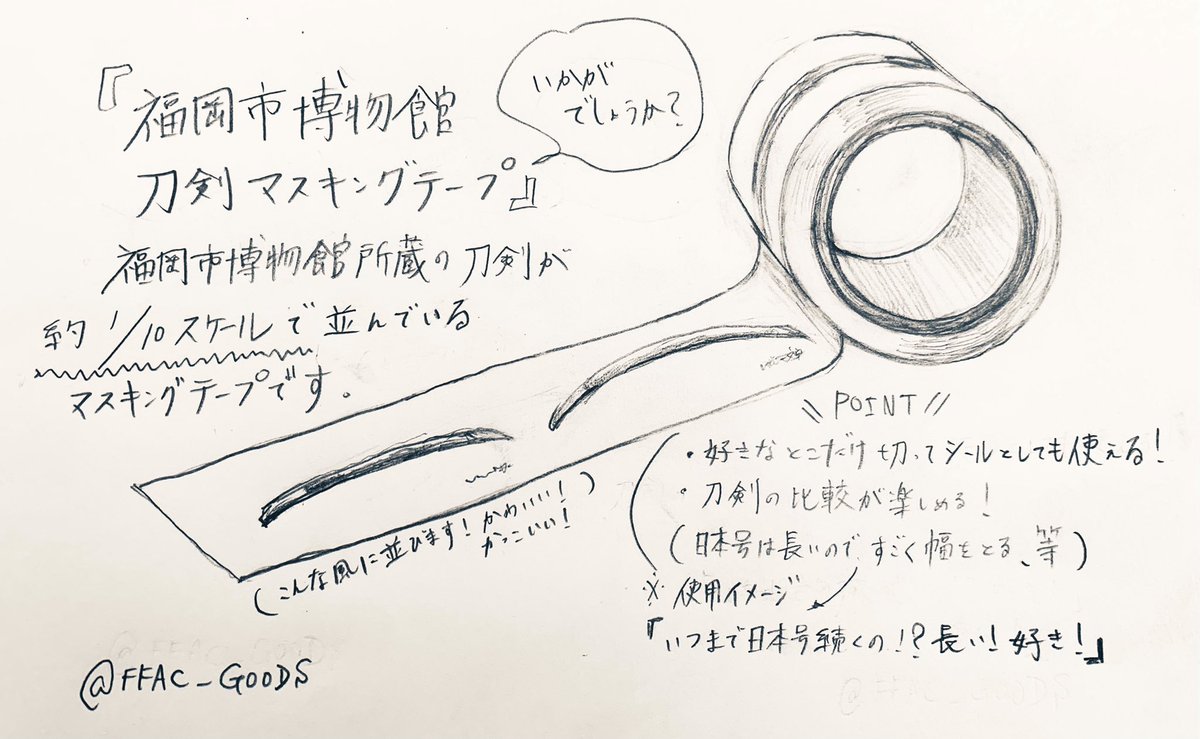 『福岡市博物館
刀剣マスキングテープ』
いかが
でしょうか?
福岡市博物館所蔵の刀剣が
約1/10スケールで並んでいる
マスキングテープです。
(こんな風に並びます!かわいい!
かっこいい!)
\\ POINT //
・好きなとこだけ切ってシールとしても使える!
・刀剣の比較が楽しめる!
(日本号は長いので、すごく幅をとる、等)
※使用イメージ
『いつまで日本号続くの!?長い!好き!』
@FFAC_GOODS
@FFAC_GOODS